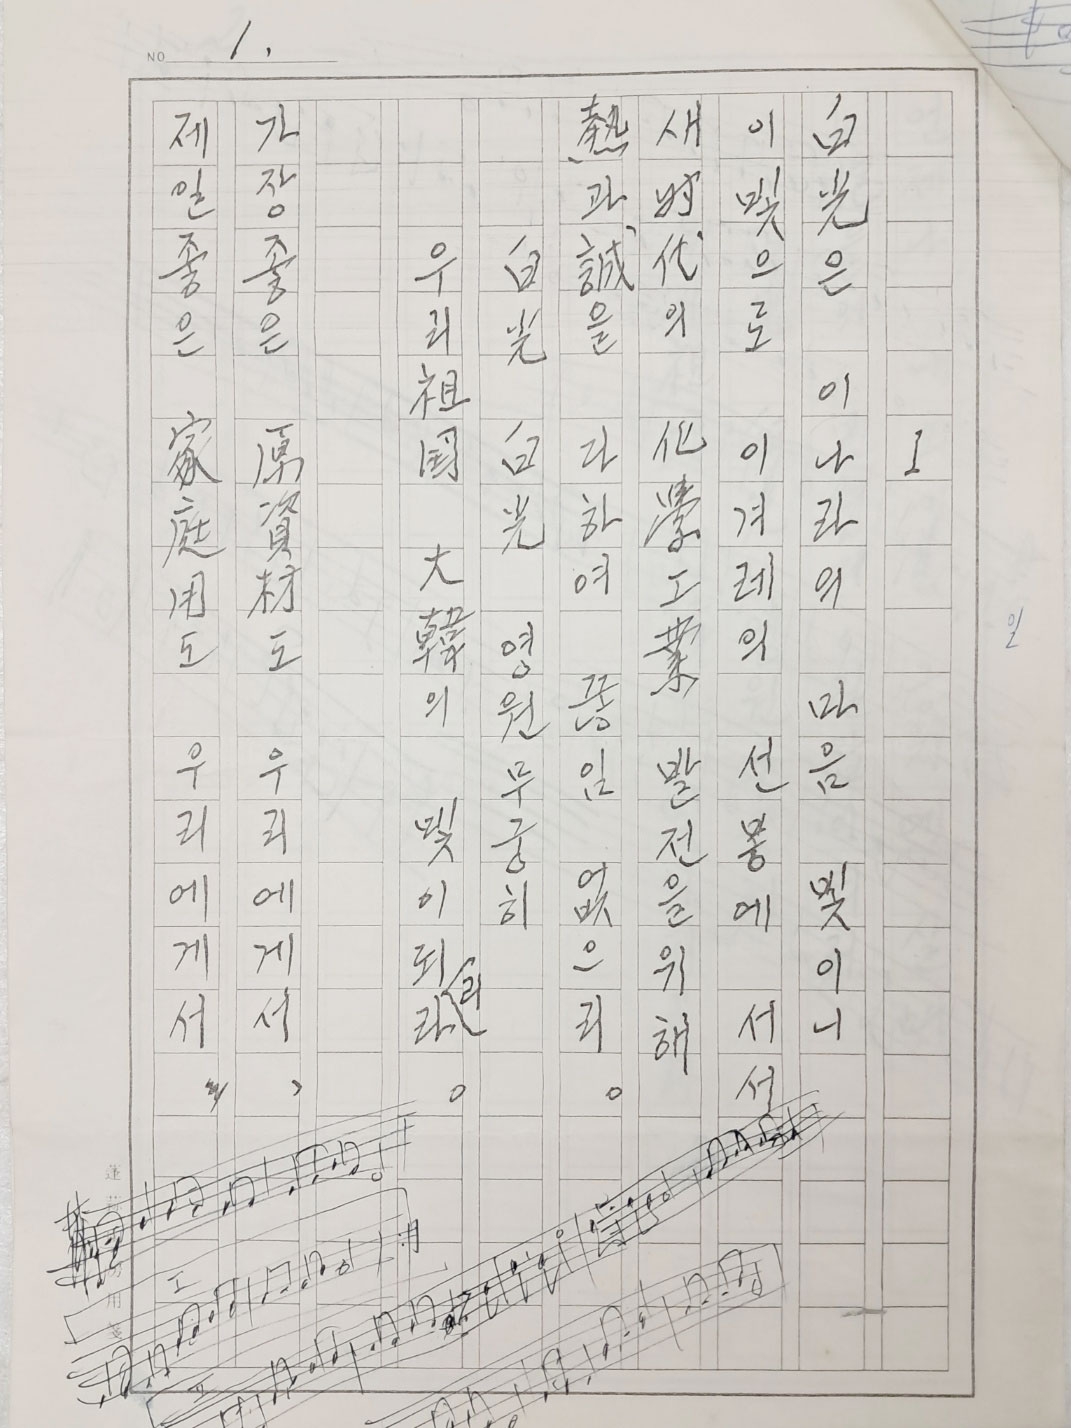 NO 1.
I
白光은 이나라의 마음 빛이니
이빛으로 이겨레의 선봉에 서서
새時代의 化學工業 발전을위해
熱과誠을 다하여 끊임 없으리。
白光 白光 영원무궁히
우리祖国 大韓의 빛이되라。
가장좋은 原資材도 우리에게서,
제일좋은 家庭用도 우리에게서
I
일